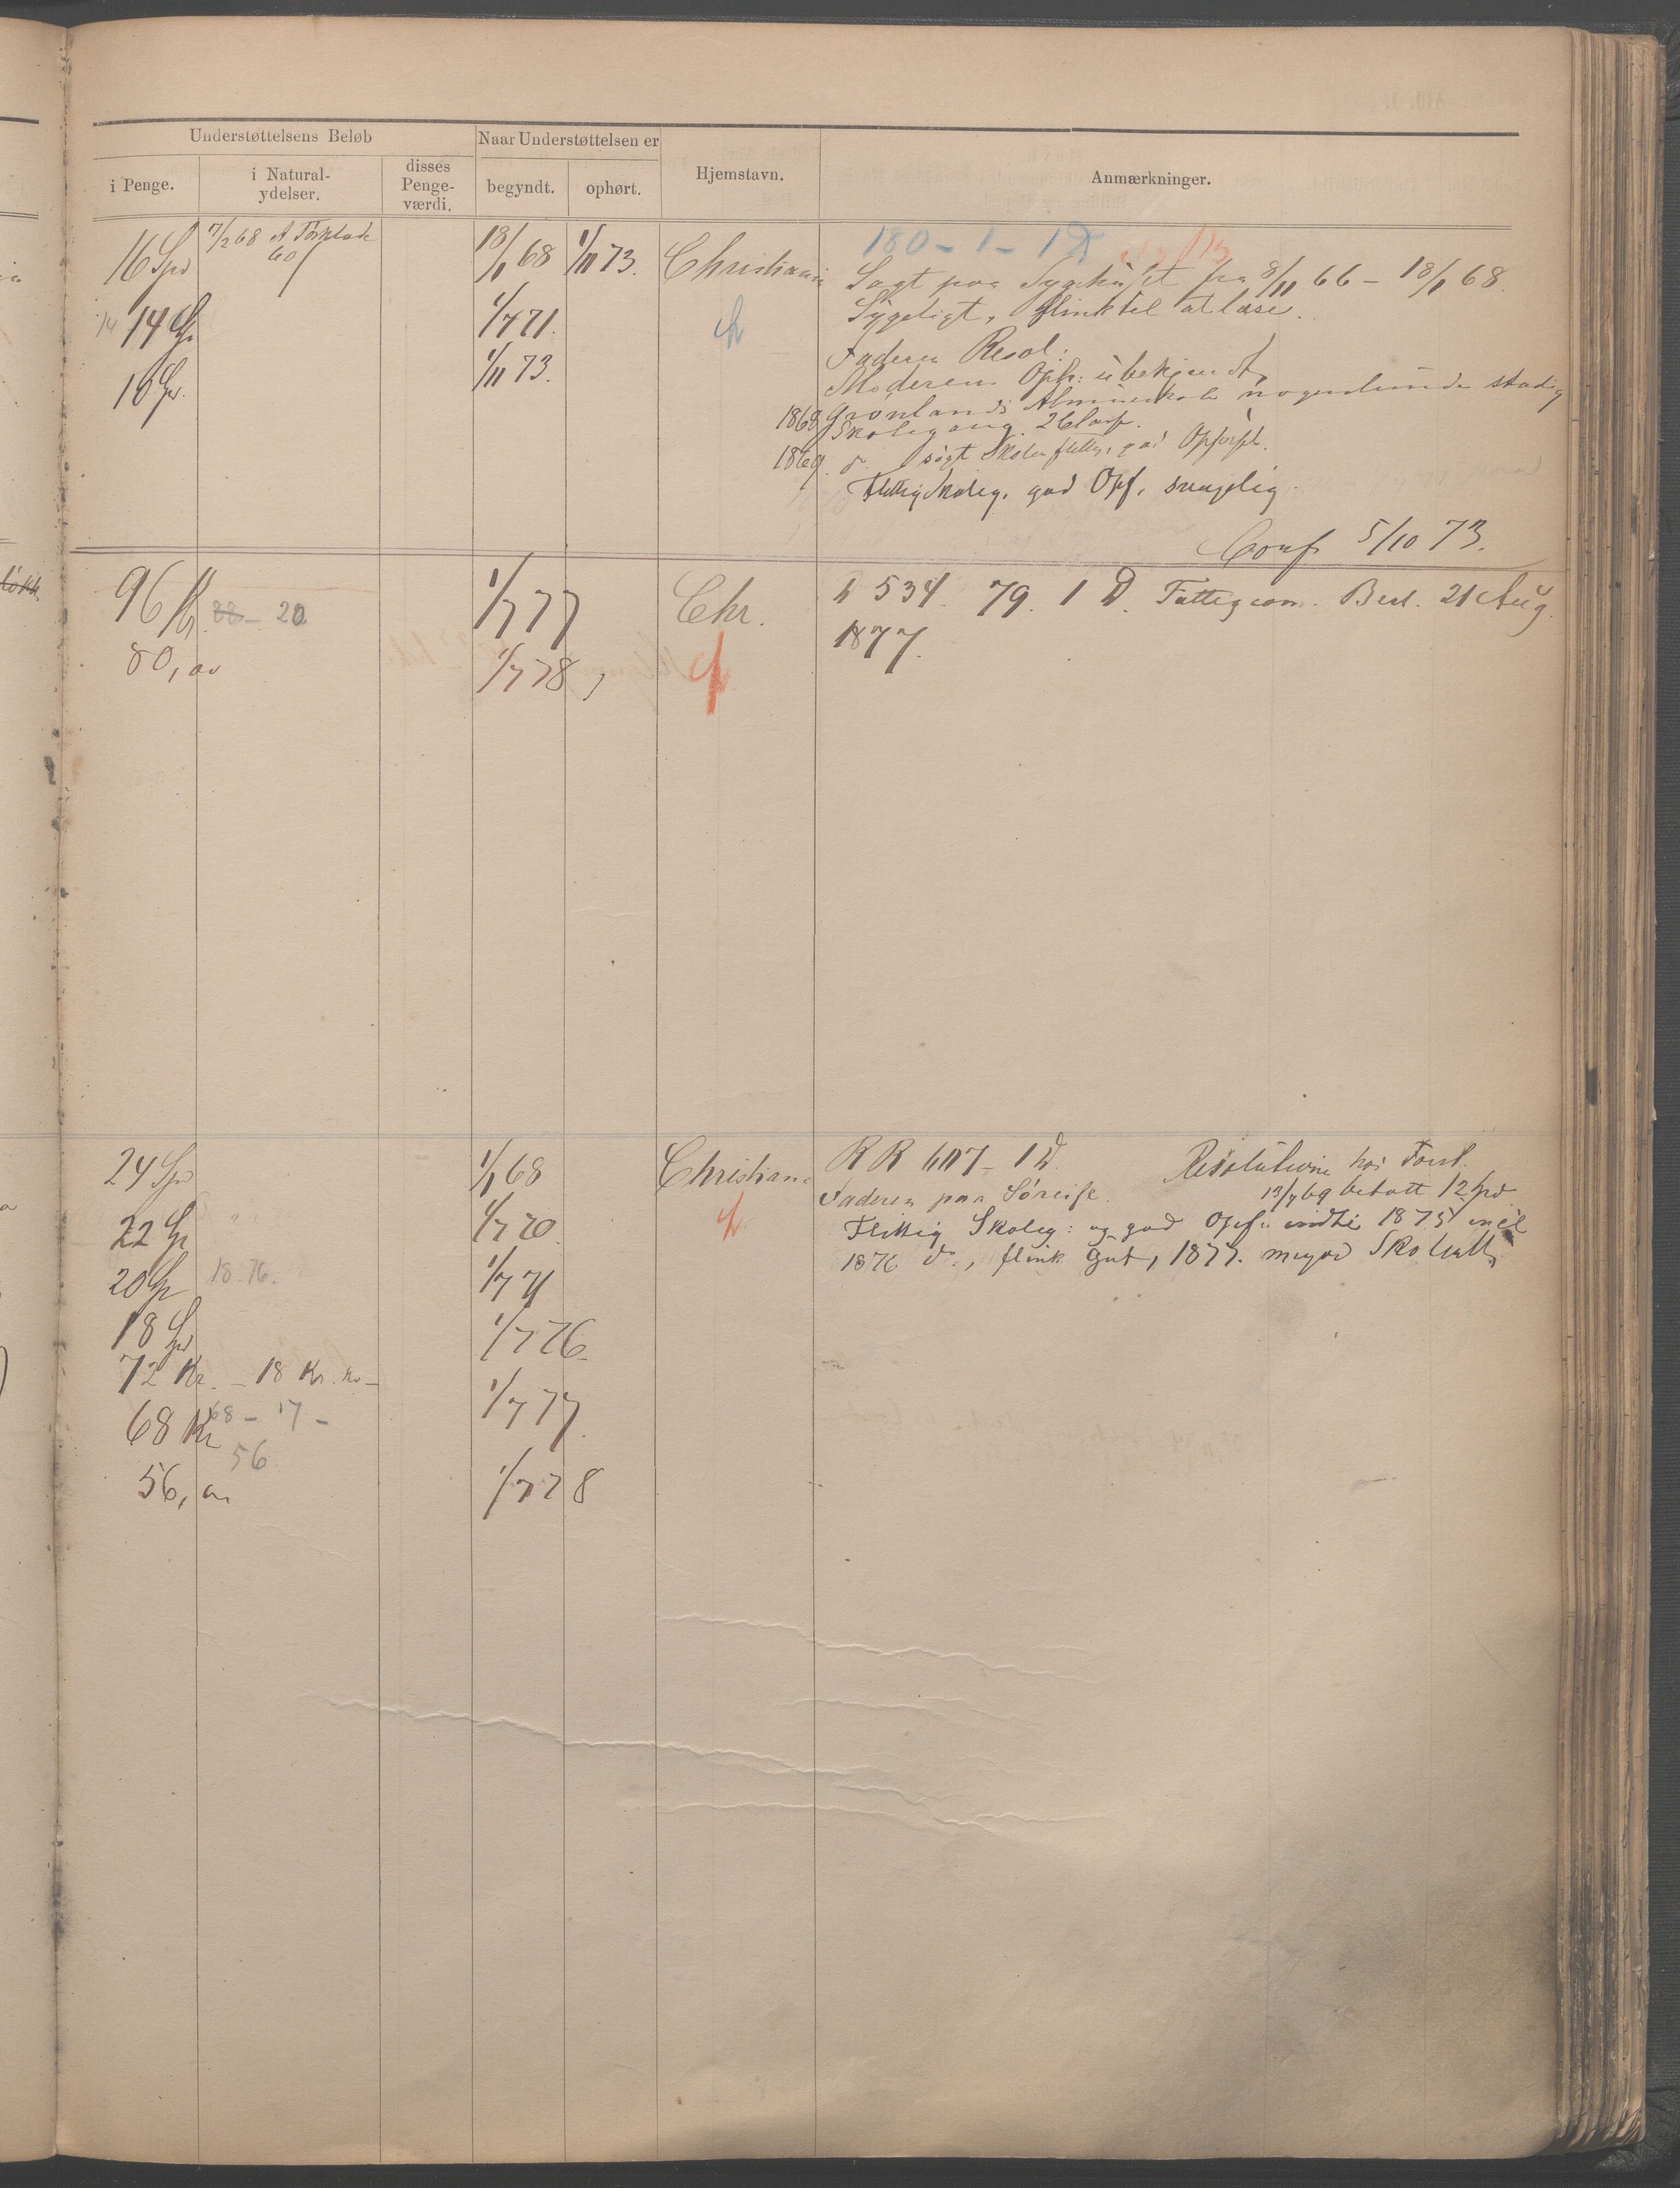 Understøttelsens Beløb
Naar Understøttelsen er
Hjemstavn.
Anmærkninger.
i Penge.
i Natural-
ydelser.
disses
Penge-
værdi.
begyndt.
ophørt.
16 Spd
7/2 68 A
60
18/1 68
1/11 73.
Christiania
180 - 1 - 1 D
paa fra 8/11 66 - 18/1 68.
Sygeligt, flink til at læse.
14 14 Sp
1/7 71.
Faderen Resol:
Moderens Oph: ubekjendt,
10 Sp.
1/11 73.
1868 Grønlands Almueskole nogenlunde stadig
Skolegang. 2 Classe.
1869. do. søgt Skolen flittig, god Opførsel.
Flittig Skoleg. god Opf. svagelig.
Conf 5/10 73.
96 Kr. 20
1/7 77
Chr.
534. 79. 1 D. Fattigcom. Besl. 21 Aug.
1877.
80,
1/7 78
24 Spd
1/1 68
Christiania
R R 607 - 1 D. Resolutione hos Forst.
Faderen paa Søreise. 13/7 69 betalt 12 Spd
22 Sp
1/7 70.
Flittig Skoleg: og god Opf: indtil 1875 incl
20 Sp 18.76.
1/7 71
1876 do., flink Gut, 1877. meget
18 Sp
1/7 76.
72 Kr. - 18 Kr.
1/7 77.
68 Kr 68 - 17 -
56
56,
1/7 78